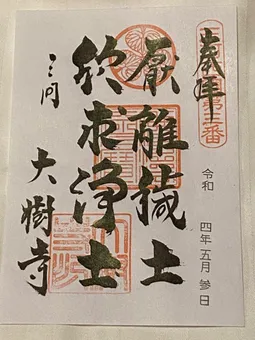 奉拝
令和 四年五月 参日
厭離穢土
欣求浄土
三河
大樹寺